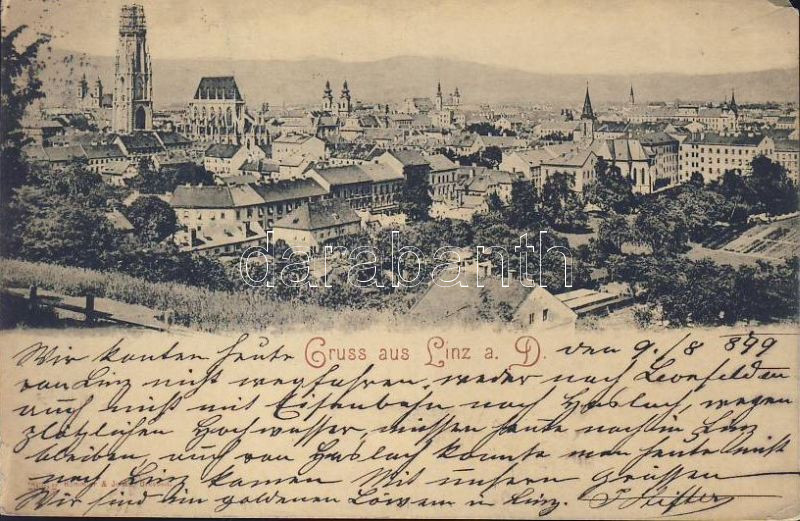 darabanth
Gruss aus Linz a. D.
den 9./8 899
Wir konten heute
von Linz nicht wegfahren, weder nach Leonfelden
auch nicht mit Eisenbahn nach Haslach, wegen
plötzlichen Hochwasser, müssen heute noch in Linz
bleiben, auch von Haslach konnte man heute nicht
nach Linz kommen Mit unsern Grüssen
Wir sind im goldenen Löwen in Linz.